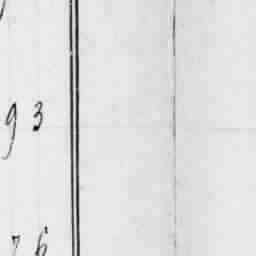 9 3
7 6